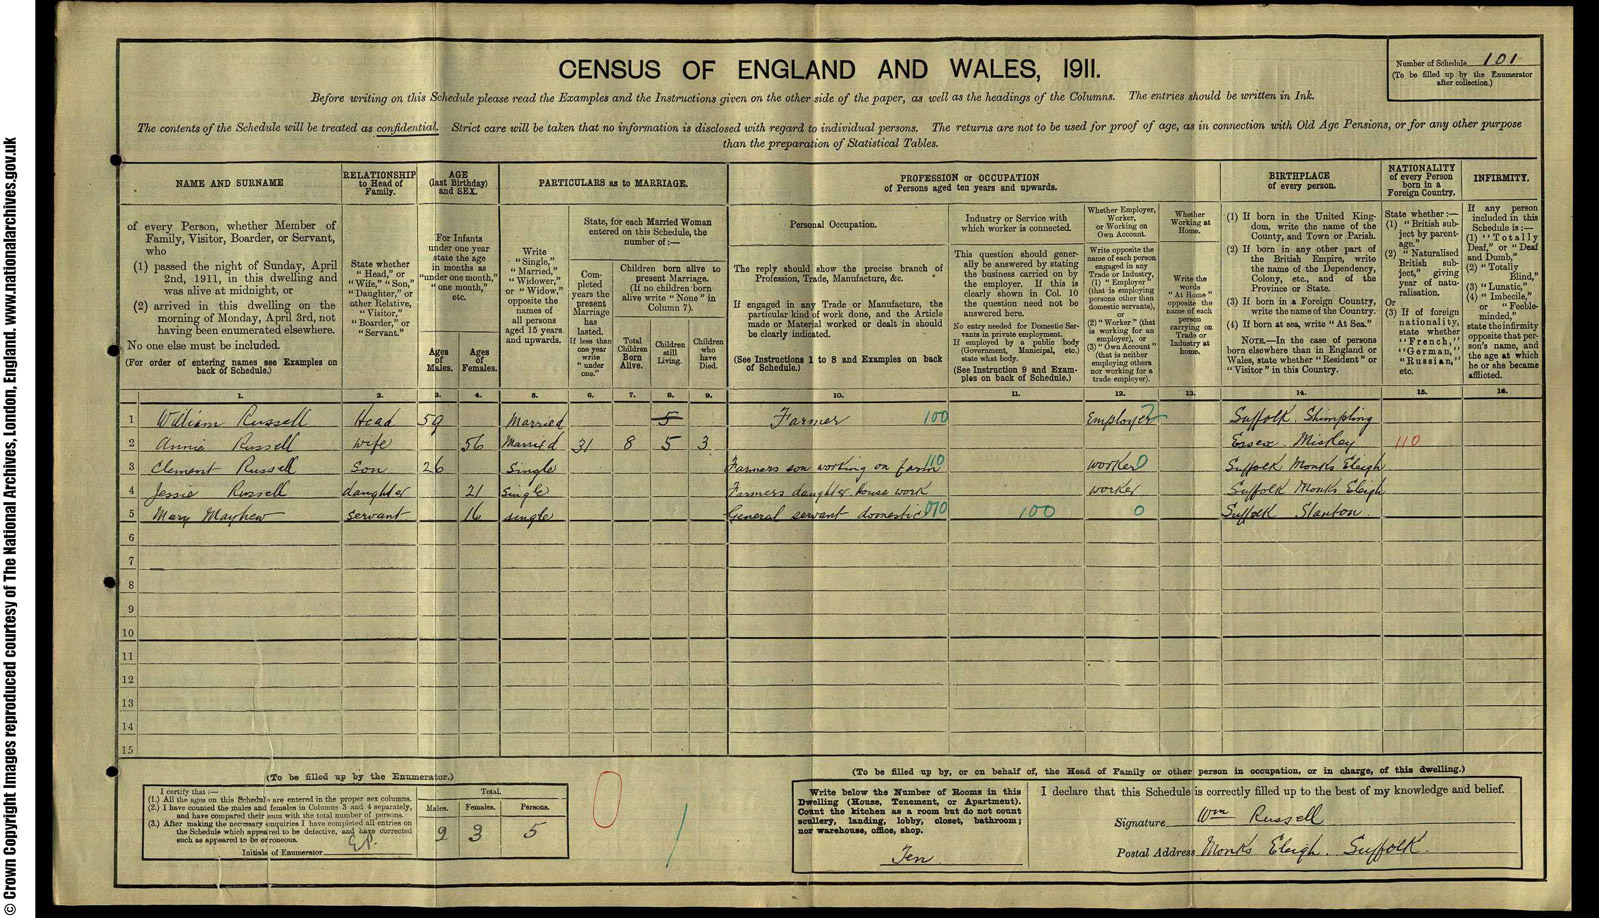 CENSUS OF ENGLAND AND WALES, 1911.
Number of Schedule 101
(To be filled up by the Enumerator
after collection.)
Before writing on this Schedule please read the Examples and the Instructions given on the other side of the paper, as well as the headings of the Columns. The entries should be written in Ink.
The contents of the Schedule will be treated as confidential. Strict care will be taken that no information is disclosed with regard to individual persons. The returns are not to be used for proof of age, as in connection with Old Age Pensions, or for any other purpose
than the preparation of Statistical Tables.
NAME AND SURNAME
of every Person, whether Member of
Family, Visitor, Boarder, or Servant,
who
(1) passed the night of Sunday, April
2nd, 1911, in this dwelling and
was alive at midnight, or
(2) arrived in this dwelling on the
morning of Monday, April 3rd, not
having been enumerated elsewhere.
No one else must be included.
(For order of entering names see Examples on
back of Schedule.)
RELATIONSHIP
to Head of
Family.
State whether
"Head," or
"Wife," "Son,"
"Daughter," or
other Relative,
"Visitor,"
"Boarder," or
"Servant."
AGE
(last Birthday)
and SEX.
For Infants
under one year
state the age
in months as
"under one month,"
"one month,"
etc.
Ages
of
Males.
Ages
of
Females.
PARTICULARS as to MARRIAGE.
Write
"Single,"
"Married,"
"Widower,"
or "Widow,"
opposite the
names of
all persons
aged 15 years
and upwards.
State, for each Married Woman
entered on this Schedule, the
number of:—
Completed
years the
present
Marriage
has
lasted.
If less than
one year
write
"under
one."
Children born alive to
present Marriage.
(If no children born
alive write "None" in
Column 7).
Total
Children
Born
Alive.
Children
still
Living.
Children
who
have
Died.
PROFESSION or OCCUPATION
of Persons aged ten years and upwards.
Personal Occupation.
The reply should show the precise branch of
Profession, Trade, Manufacture, &c.
If engaged in any Trade or Manufacture, the
particular kind of work done, and the Article
made or Material worked or dealt in should
be clearly indicated.
(See Instructions 1 to 8 and Examples on back
of Schedule.)
Industry or Service with
which worker is connected.
This question should gener-
ally be answered by stating
the business carried on by
the employer. If this is
clearly shown in Col. 10
the question need not be
answered here.
No entry needed for Domestic Ser-
vants in private employment.
If employed by a public body
(Government, Municipal, etc.)
state what body.
(See Instruction 9 and Exam-
ples on back of Schedule.)
Whether Employer,
Worker,
or Working on
Own Account.
Write opposite the
name of each person
engaged in any
Trade or Industry,
(1) "Employer"
(that is employing
persons other than
domestic servants),
or
(2) "Worker" (that
is working for an
employer), or
(3) "Own Account"
(that is neither
employing others
nor working for a
trade employer).
Whether
Working at
Home.
Write the
words
"At Home"
opposite the
name of each
person
carrying on
Trade or
Industry at
home.
BIRTHPLACE
of every person.
(1) If born in the United King-
dom, write the name of the
County, and Town or Parish.
(2) If born in any other part of
the British Empire, write
the name of the Dependency,
Colony, etc., and of the
Province or State.
(3) If born in a Foreign Country,
write the name of the Country.
(4) If born at sea, write "At Sea."
NOTE.—In the case of persons
born elsewhere than in England or
Wales, state whether "Resident" or
"Visitor" in this Country.
NATIONALITY
of every Person
born in a
Foreign Country.
State whether:—
(1) "British sub-
ject by parent-
age."
(2) "Naturalised
British sub-
ject," giving
year of natu-
ralisation.
Or
(3) If of foreign
nationality,
state whether
"French,"
"German,"
"Russian,"
etc.
INFIRMITY.
If any person
included in this
Schedule is:—
(1) "Totally
Deaf," or "Deaf
and Dumb,"
(2) "Totally
Blind,"
(3) "Lunatic,"
(4) "Imbecile,"
or "Feeble-
minded,"
state the infirmity
opposite that per-
son's name, and
the age at which
he or she became
afflicted.
1. 2. 3. 4. 5. 6. 7. 8. 9. 10. 11. 12. 13. 14. 15. 16.
1 William Russell Head 59 Married 5 Farmer 100 Employer 2 Suffolk. Shimpling
2 Annie Russell wife 56 Married 31 8 5 3 Essex. Mistley 110
3 Clement Russell Son 26 Single Farmers son working on farm 110 worker 0 Suffolk Monks Eleigh
4 Jessie Russell daughter 21 Single Farmers daughter. house work worker Suffolk Monks Eleigh
5 Mary Mayhew servant 16 single General servant domestic 070 100 0 Suffolk Stanton.
6
7
8
9
10
11
12
13
14
15
(To be filled up by the Enumerator.)
I certify that:—
(1.) All the ages on this Schedule are entered in the proper sex columns.
(2.) I have counted the males and females in Columns 3 and 4 separately,
and have compared their sum with the total number of persons.
(3.) After making the necessary enquiries I have completed all entries on
the Schedule which appeared to be defective, and have corrected
such as appeared to be erroneous.
Initials of Enumerator
Total.
Males. Females. Persons.
2 3 5
0
(To be filled up by, or on behalf of, the Head of Family or other person in occupation, or in charge, of this dwelling.)
Write below the Number of Rooms in this
Dwelling (House, Tenement, or Apartment).
Count the kitchen as a room but do not count
scullery, landing, lobby, closet, bathroom;
nor warehouse, office, shop.
Ten
I declare that this Schedule is correctly filled up to the best of my knowledge and belief.
Signature Wm Russell
Postal Address Monks Eleigh. Suffolk.
© Crown Copyright Images reproduced courtesy of The National Archives, London, England. www.nationalarchives.gov.uk